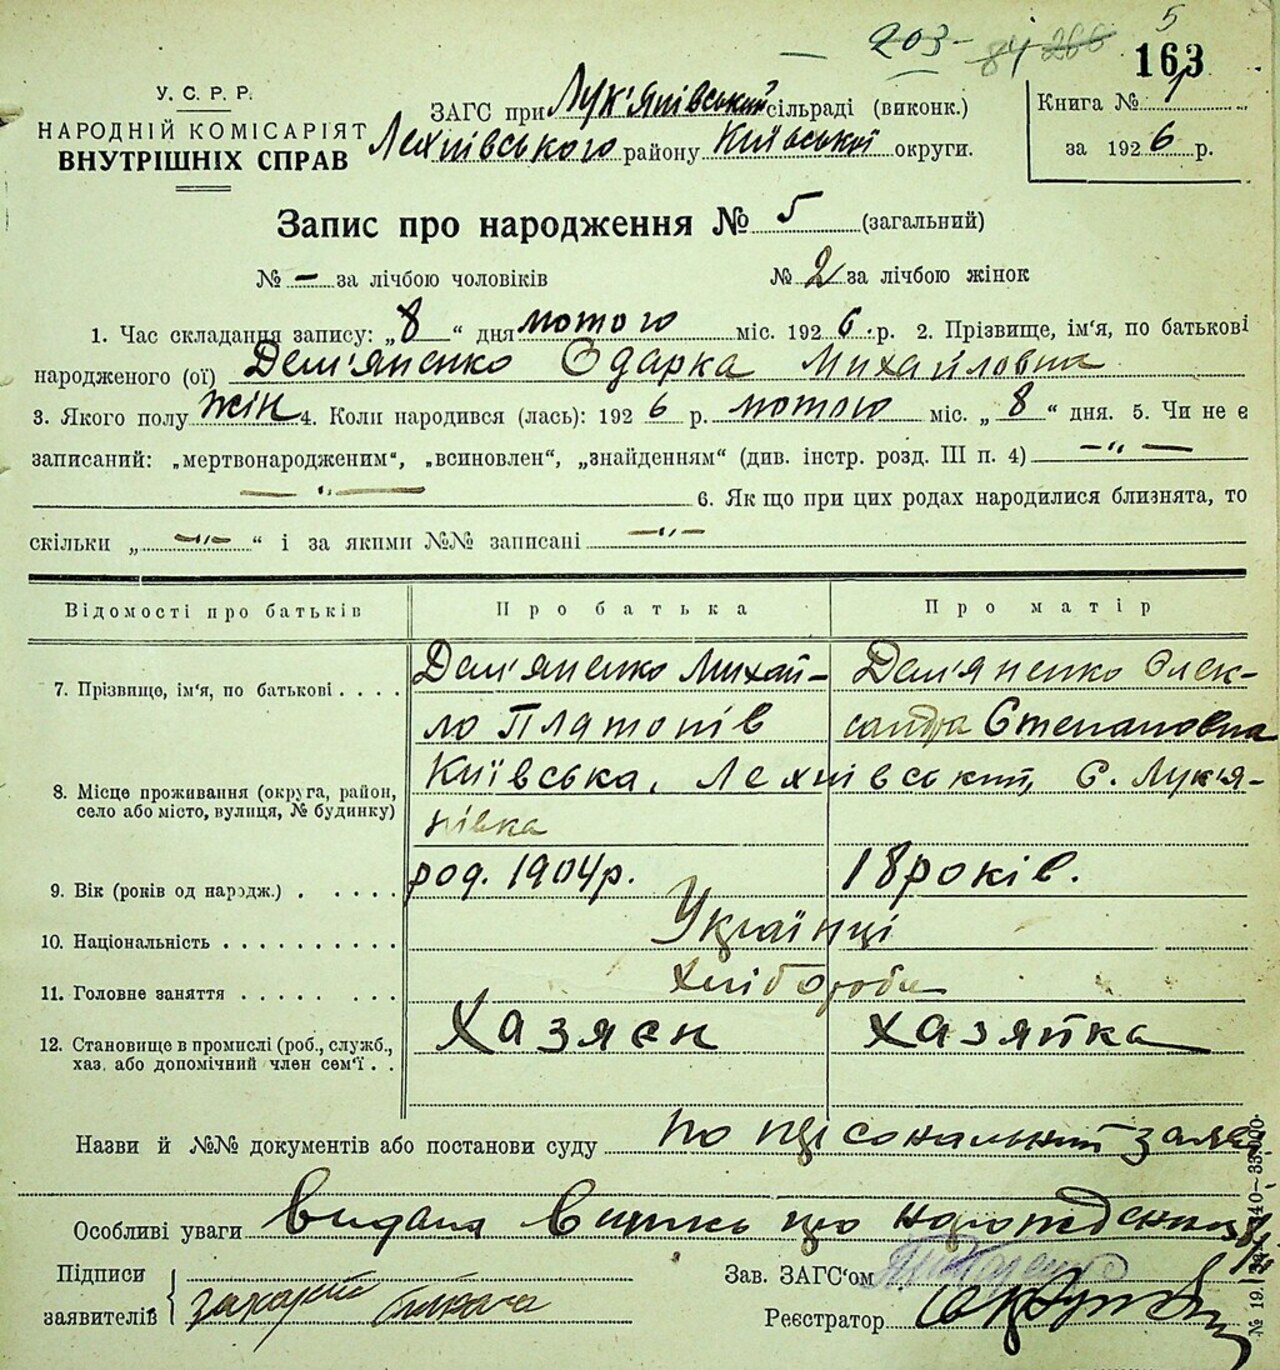 5
203- 84 266 163
У. С. Р. Р.
НАРОДНІЙ КОМІСАРІЯТ
ВНУТРІШНІХ СПРАВ
ЗАГС при Лук'янівський сільраді (виконк.)
Лехнівського району Київської округи.
Книга № 1
за 1926 р.
Запис про народження № 5 (загальний)
№ — за лічбою чоловіків № 2 за лічбою жінок
1. Час складання запису: „8" дня лютого міс. 1926 р. 2. Прізвище, ім'я, по батькові
народженого (ої) Дем'яненко Одарка Михайловна
3. Якого полу жін 4. Коли народився (лась): 1926 р. лютого міс. „8" дня. 5. Чи не є
записаний: „мертвонародженим", „всиновлен", „знайденням" (див. інстр. розд. III п. 4) —„—
—„— 6. Як що при цих родах народилися близнята, то
скільки „—„—" і за якими №№ записані —„—
Відомості про батьків Про батька Про матір
7. Прізвище, ім'я, по батькові . . . . Дем'яненко Михай- Дем'яненко Олек-
ло Платонів сандра Степановна
8. Місце проживання (округа, район, Київська, Лехнівський, С. Лук'я-
село або місто, вулиця, № будинку) нівка
9. Вік (років од народж.) . . . . . род. 1904 р. 18 років.
10. Національність . . . . . . . . . . Українці
11. Головне заняття . . . . . . . . Хлібороби
12. Становище в промислі (роб., служб., Хазяєн хазяйка
хаз. або допомічний член сем'ї . .
Назви й №№ документів або постанови суду по персональний заяві
Особливі уваги видана випись про народження
Підписи
заявителів
Зав. ЗАГС'ом
Реєстратор